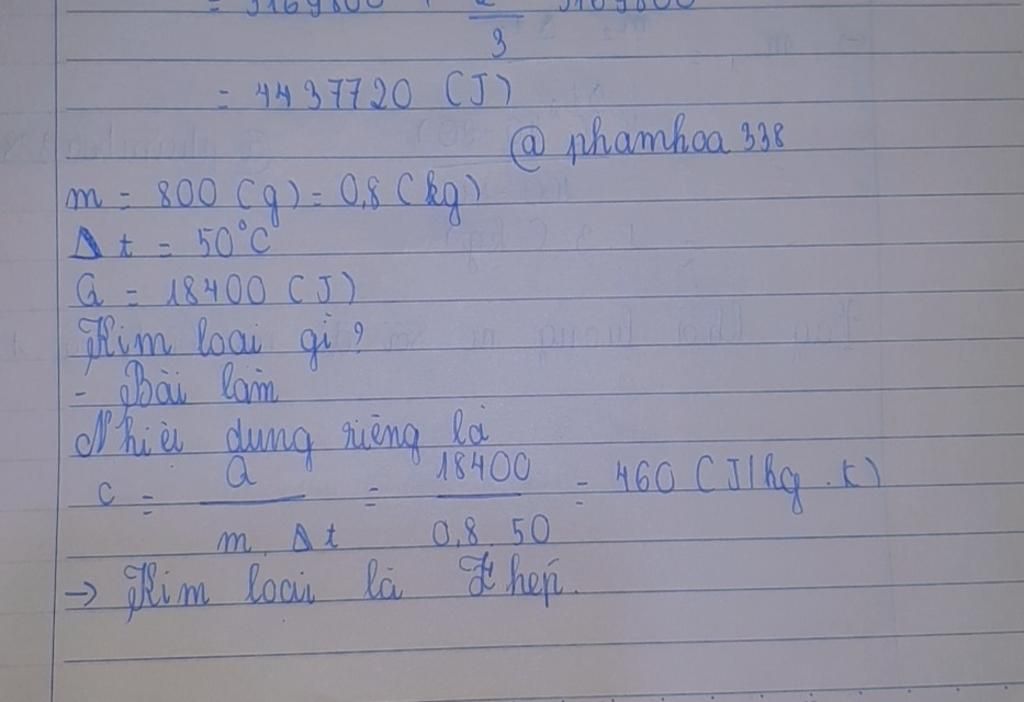 = 3169800 + 2/3 3169800
= 4437720 (J)
@ phamhoa 338
m = 800 (g) = 0,8 (kg)
Δt = 50°C
Q = 18400 (J)
Kim loại gì?
- Bài làm
Nhiệt dung riêng là
c = Q / m. Δt = 18400 / 0,8. 50 = 460 (J/kg.K)
→ Kim loại là Thép.